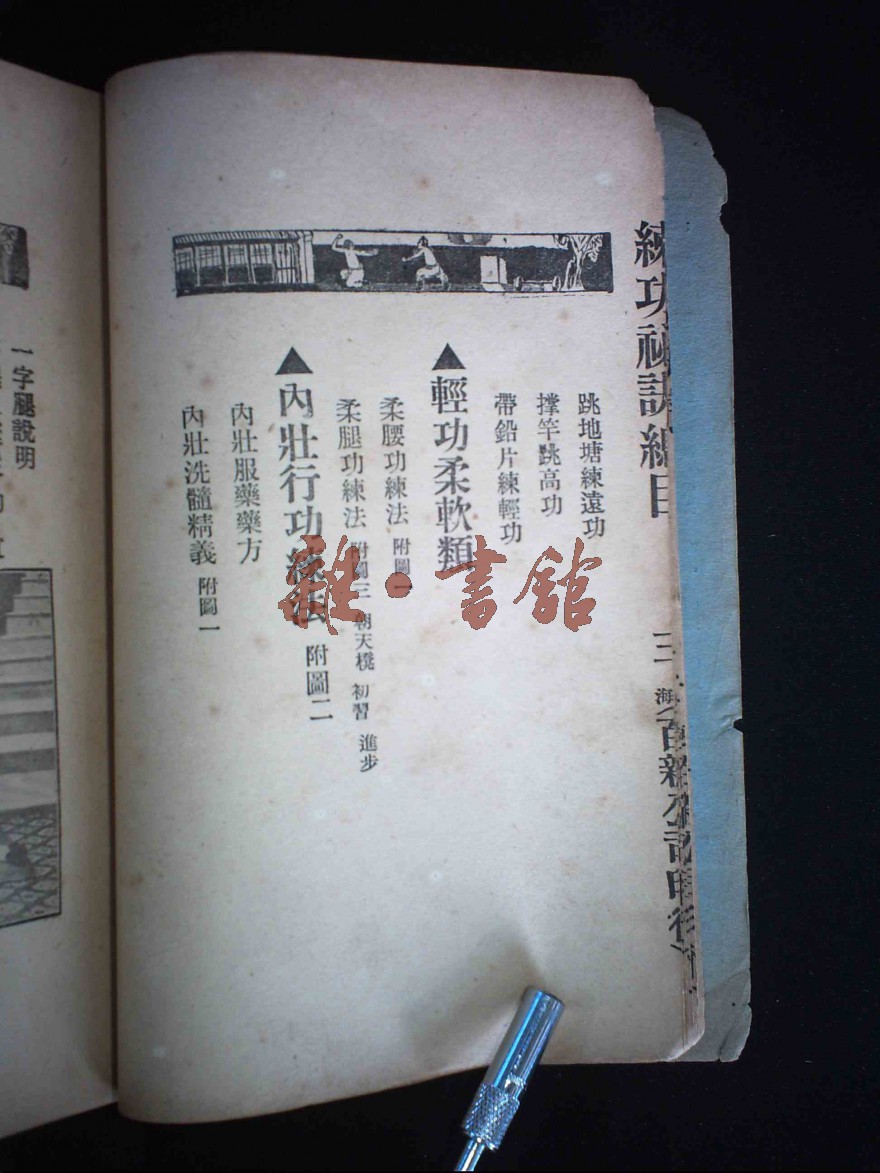 練功祕訣細目
三
海
跳地塘練遠功
撑竿跳高功
帶鉛片練輕功
▲輕功柔軟類
柔腰功練法 附圖一
柔腿功練法 附圖三 朝天櫈 初習 進步
▲內壯行功練法 附圖二
內壯服藥藥方
內壯洗髓精義 附圖一
一字腿說明
雜·書館